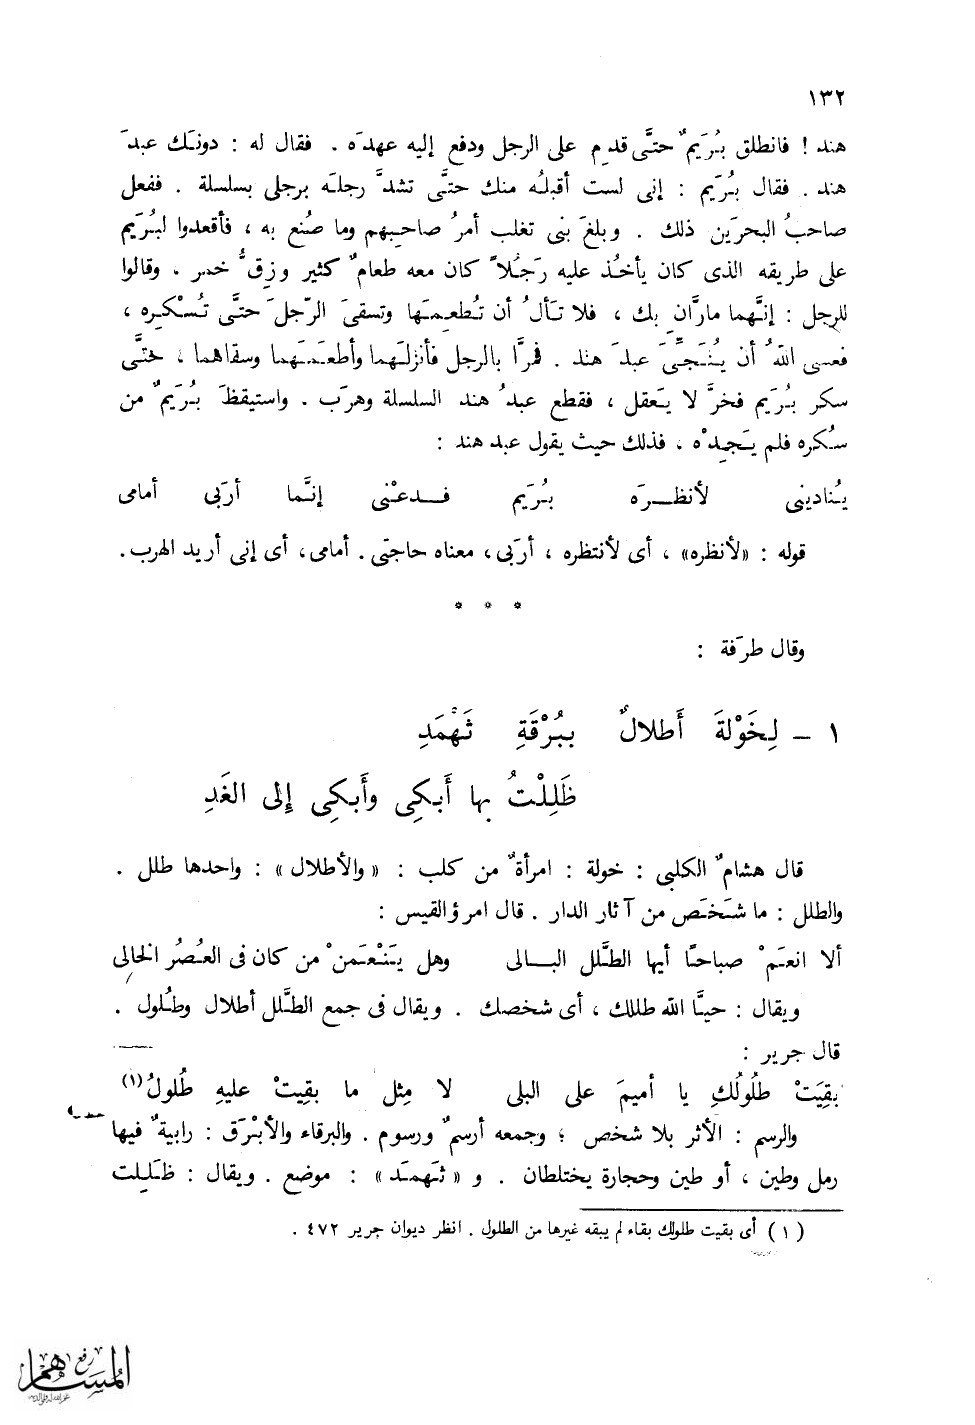 ١٣٢
هند ! فانطلق بُرَيمٌ حتَّى قدِم على الرجل ودفع إليه عهدَه . فقال له : دونَك عبدَ
هند . فقال بُرَيم : إنى لست أقبلُه منك حتَّى تشدَّ رجلَه برجلى بسلسلة . ففعل
صاحبُ البحرَين ذلك . وبلغَ بنى تغلب أمرُ صاحبِهم وما صُنع به ، فأقعدوا لبُرَيم
على طريقه الذى كان يأخُذ عليه رَجُلاً كان معه طعامٌ كثير وزِقُّ خمر . وقالوا
للرجل : إنَّهما مارَّانِ بك ، فلا تَألُ أن تُطعِمَها وتسقىَ الرّجلَ حتَّى تُسْكِره ،
فعسى اللهُ أن يُنَجِّىَ عبدَ هند . فمرَّا بالرجل فأنزلَهما وأطعَمَهما وسقاهما ، حتَّى
سكر بُرَيم فخرَّ لا يَعقل ، فقطع عبدُ هند السلسلة وهرَب . واستيقظَ بُرَيمٌ من
سُكره فلم يَجِدْه . فذلك حيث يقول عبد هند :
يُنادينى لأنظـــرَه بُرَيم فـــدعْنى إنَّما أرَبى أمامى
قوله : «لأنظره» ، أى لأنتظره ، أرَبى، معناه حاجتى . أمامى، أى إنى أريد الهرب .
* * *
وقال طرَفة :
١ – لِخَوْلةَ أَطلالٌ ببُرْقَةِ ثَهْمَدِ
ظَلِلْتُ بها أَبكِى وأَبكِى إِلى الغَدِ
قال هشامٌ الكلبى : خولة : امرأةٌ من كلب : « والأطلال » : واحدها طلل .
والطلل : ما شَخَص من آثار الدار . قال امرؤ القيس :
ألا انعَمْ صباحًا أيها الطَّلل البـــالى وهل يَنْعَمَنْ من كان فى العُصُر الخالى
ويقال : حيَّا الله طللك ، أى شخصك . ويقال فى جمع الطَّلل أطلال وطُلول .
قال جرير :
بقِيَتْ طلُولُكِ يا أميمَ على البلى لا مِثل ما بقِيتْ عليهِ طُلولُ(١)
والرسم : الأثر بلا شخص ؛ وجمعه أرسمٌ ورسوم . والبرقاء والأبْرَق : رابيةٌ فيها
رمل وطين ، أو طين وحجارة يختلطان . و « ثَهمَد » : موضع . ويقال : ظَلِلت
( ١ ) أى بقيت طلولك بقاء لم يبقه غيرها من الطلول . انظر ديوان جرير ٤٧٢ .
رفع
المساهم